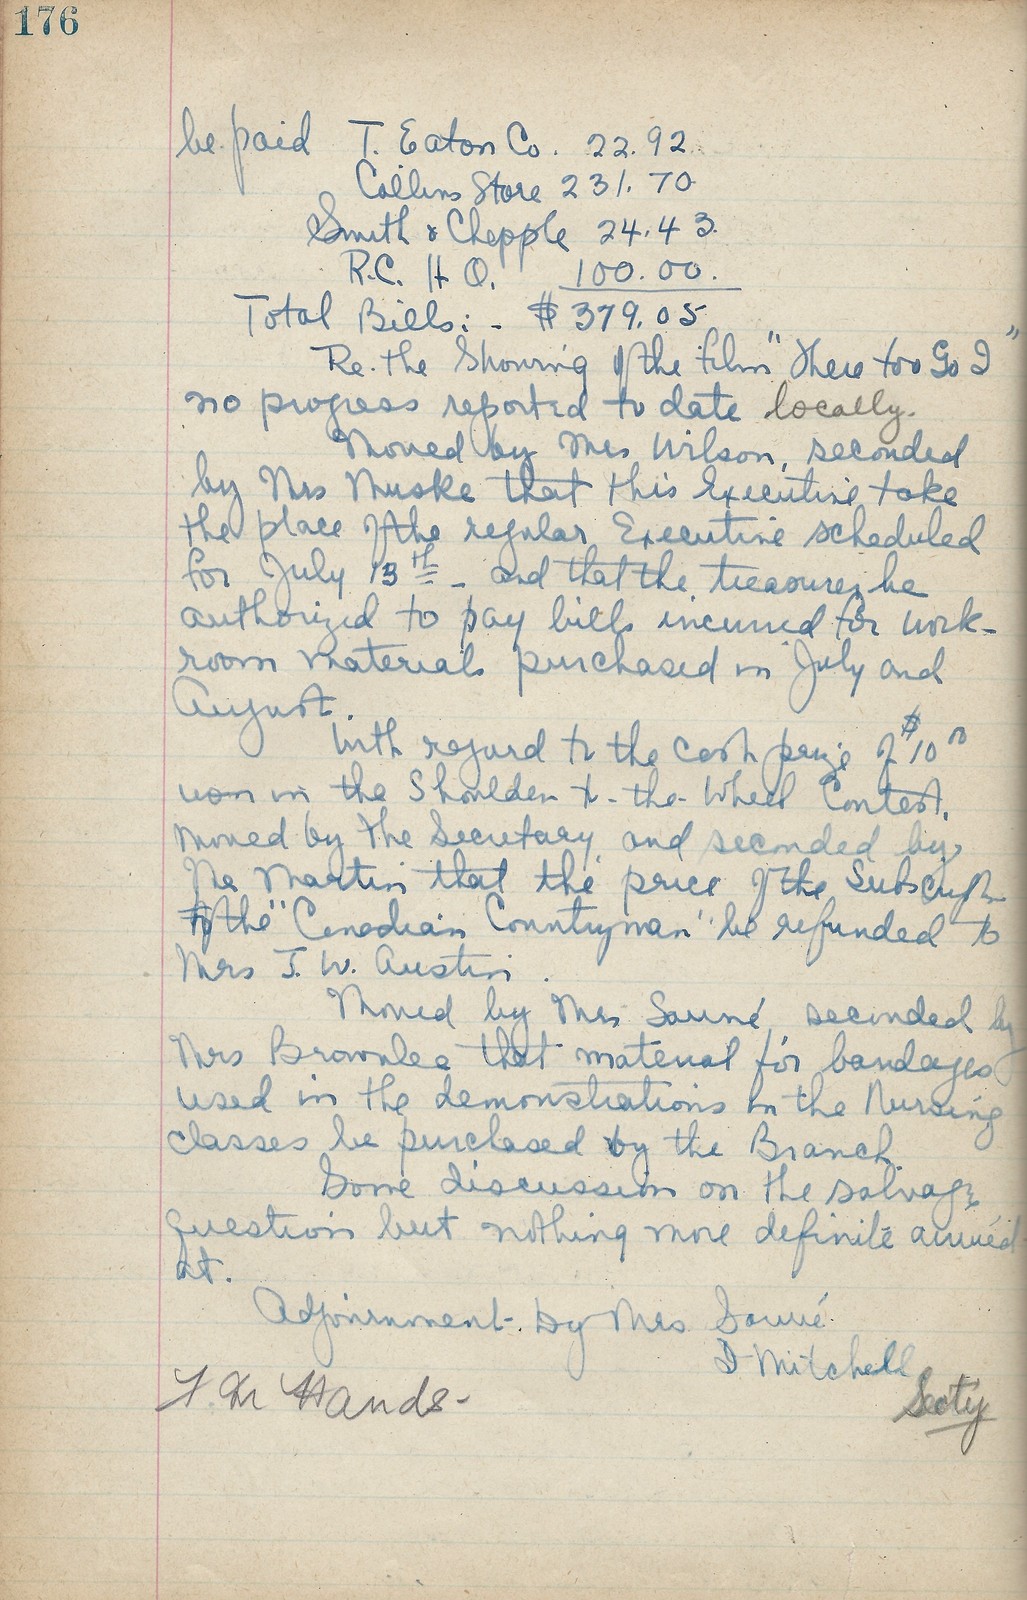 176
be paid T. Eaton Co. 22.92
Collins Store 231.70
Smith & Chepple 24.43.
R.C. H Q. 100.00.
Total Bills: - $379.05
Re. the Showing of the film "There too Go I"
no progress reported to date locally.
Moved by Mrs Wilson, seconded
by Mrs Muske that this Executive take
the place of the regular Executive scheduled
for July 13th - and that the treasurer be
authorized to pay bills incurred for work-
room materials purchased in July and
August.
With regard to the cash prize of $10
won in the Shoulder-to-the-Wheel Contest,
moved by the Secretary and seconded by
Martin that the price of the
of the "Canadian Countryman" be refunded to
Mrs J. W. Austin.
Moved by Mrs Sauvé, seconded by
Mrs Brownlee that material for bandages
used in the demonstrations in the Nursing
classes be purchased by the Branch.
Some discussion on the salvage
question but nothing more definite arrived
at.
Adjournment. by Mrs Sauvé.
Mitchell
Hands-
Sect'y